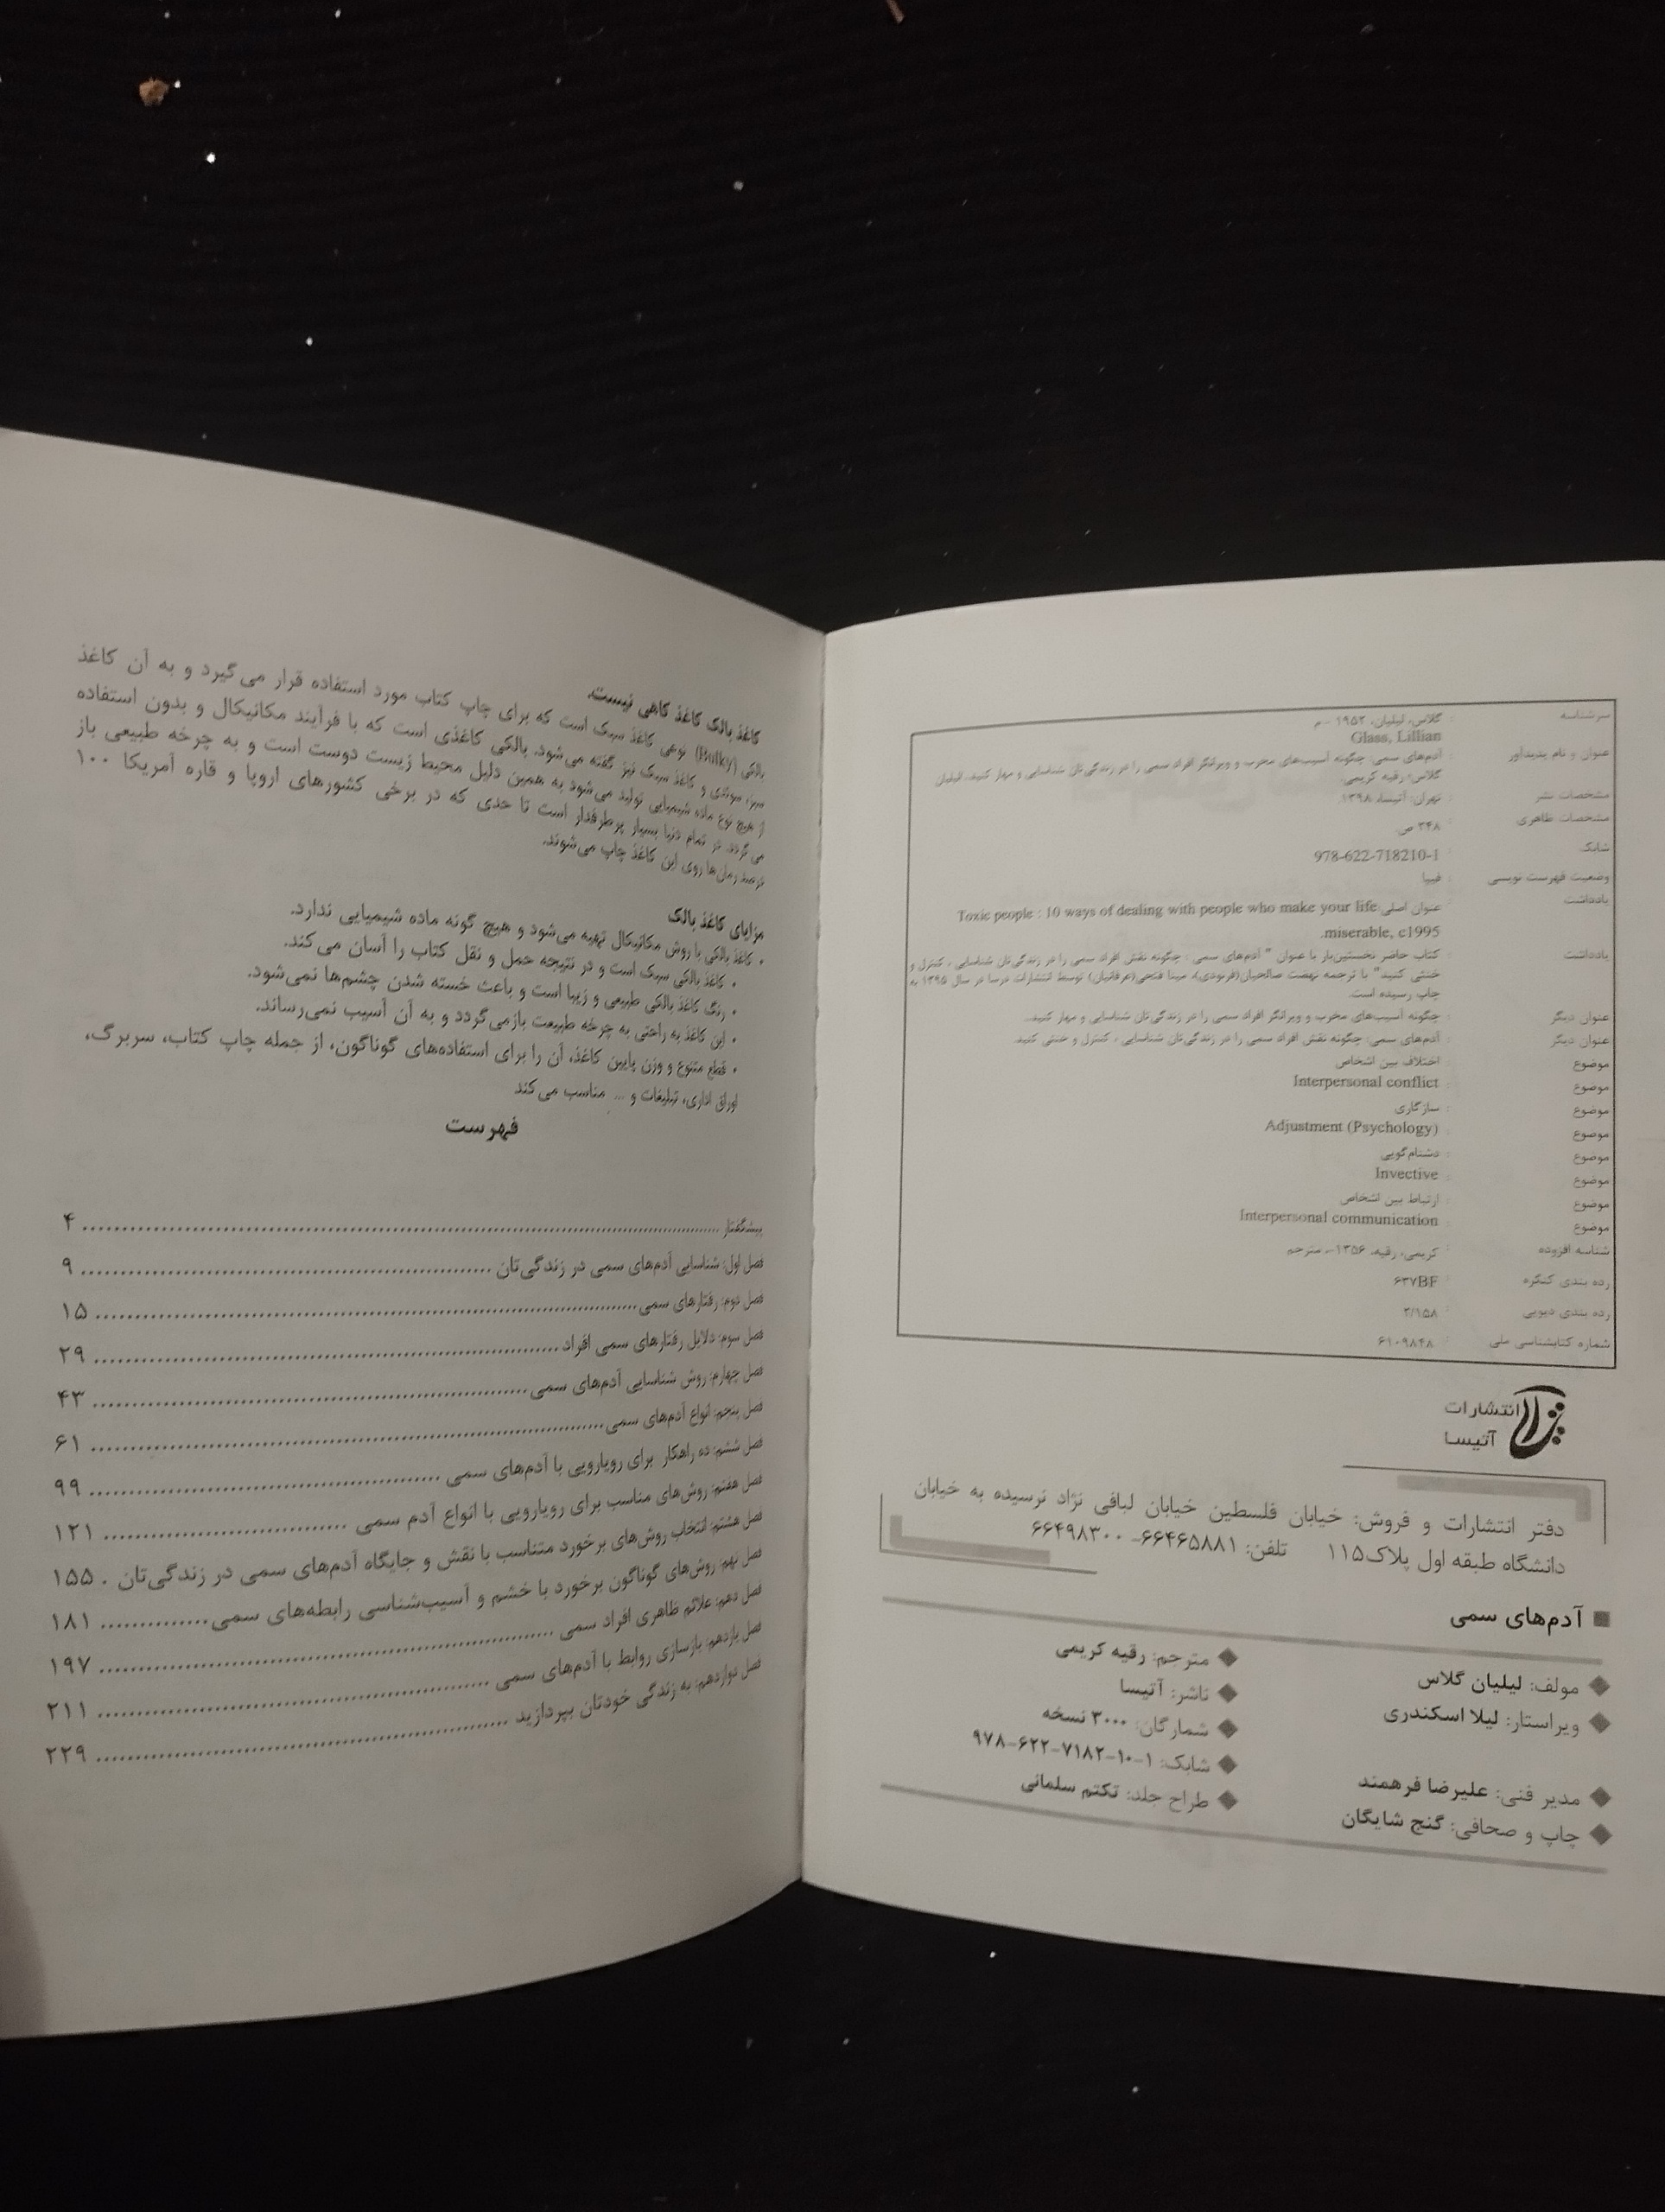 سرشناسه : گلاس، لیلیان، ۱۹۵۲ - م
Glass, Lillian
عنوان و نام پدیدآور : آدم‌های سمی: چگونه آسیب‌های مخرب و ویرانگر افراد سمی را در زندگی‌تان شناسایی و مهار کنید.. لیلیان
گلاس؛ رقیه کریمی.
مشخصات نشر : تهران: آتیسا، ۱۳۹۸.
مشخصات ظاهری : ۲۴۸ ص.
شابک : 978-622-718210-1
وضعیت فهرست نویسی : فیپا
یادداشت : عنوان اصلی: Toxic people : 10 ways of dealing with people who make your life
miserable, c1995.
یادداشت : کتاب حاضر نخستین‌بار با عنوان " آدم‌های سمی : چگونه نقش افراد سمی را در زندگی‌تان شناسایی ، کنترل و
خنثی کنید" با ترجمه نهضت صالحیان(فرنودی)، مینا فتحی(عرفانیان) توسط انتشارات درسا در سال ۱۳۹۵ به
چاپ رسیده است.
عنوان دیگر : چگونه آسیب‌های مخرب و ویرانگر افراد سمی را در زندگی‌تان شناسایی و مهار کنید..
عنوان دیگر : آدم‌های سمی: چگونه نقش افراد سمی را در زندگی‌تان شناسایی ، کنترل و خنثی کنید.
موضوع : اختلاف بین اشخاص
موضوع : Interpersonal conflict
موضوع : سازگاری
موضوع : Adjustment (Psychology)
موضوع : دشنام‌گویی
موضوع : Invective
موضوع : ارتباط بین اشخاص
موضوع : Interpersonal communication
شناسه افزوده : کریمی، رقیه، ۱۳۵۶-، مترجم
رده بندی کنگره : ۶۳۷BF
رده بندی دیویی : ۲/۱۵۸
شماره کتابشناسی ملی : ۶۱۰۹۸۴۸
انتشارات
آتیسا
دفتر انتشارات و فروش: خیابان فلسطین خیابان لبافی نژاد نرسیده به خیابان
دانشگاه طبقه اول پلاک۱۱۵ تلفن: ۶۶۴۶۵۸۸۱- ۶۶۴۹۸۳۰۰
آدم‌های سمی
مولف: لیلیان گلاس
مترجم: رقیه کریمی
ویراستار: لیلا اسکندری
ناشر: آتیسا
شمارگان: ۳۰۰۰ نسخه
مدیر فنی: علیرضا فرهمند
شابک: ۱-۱۰-۷۱۸۲-۶۲۲-۹۷۸
چاپ و صحافی: گنج شایگان
طراح جلد: تکتم سلمانی
کاغذ بالک کاغذ کاهی نیست.
بالکی (Bulky) نوعی کاغذ سبک است که برای چاپ کتاب مورد استفاده قرار می‌گیرد و به آن کاغذ
سبز، سوئدی و کاغذ سبک نیز گفته می‌شود. بالکی کاغذی است که با فرآیند مکانیکال و بدون استفاده
از هیچ نوع ماده شیمیایی تولید می‌شود به همین دلیل محیط زیست دوست است و به چرخه طبیعی باز
می گردد. در تمام دنیا بسیار پرطرفدار است تا حدی که در برخی کشورهای اروپا و قاره آمریکا ۱۰۰
درصد رمان‌ها روی این کاغذ چاپ می‌شوند.
مزایای کاغذ بالک
• کاغذ بالکی با روش مکانیکال تهیه می‌شود و هیچ گونه ماده شیمیایی ندارد.
• کاغذ بالکی سبک است و در نتیجه حمل و نقل کتاب را آسان می‌کند.
• رنگ کاغذ بالکی طبیعی و زیبا است و باعث خسته شدن چشم‌ها نمی‌شود.
• این کاغذ به راحتی به چرخه طبیعت بازمی‌گردد و به آن آسیب نمی‌رساند.
• قطع متنوع و وزن پایین کاغذ، آن را برای استفاده‌های گوناگون، از جمله چاپ کتاب، سربرگ،
اوراق اداری، تبلیغات و ... مناسب می‌کند
فهرست
پیشگفتار ........ ۴
فصل اول: شناسایی آدم‌های سمی در زندگی‌تان ........ ۹
فصل دوم: رفتارهای سمی ........ ۱۵
فصل سوم: دلایل رفتارهای سمی افراد ........ ۲۹
فصل چهارم: روش شناسایی آدم‌های سمی ........ ۴۳
فصل پنجم: انواع آدم‌های سمی ........ ۶۱
فصل ششم: ده راهکار برای رویارویی با آدم‌های سمی ........ ۹۹
فصل هفتم: روش‌های مناسب برای رویارویی با انواع آدم سمی ........ ۱۲۱
فصل هشتم: انتخاب روش‌های برخورد متناسب با نقش و جایگاه آدم‌های سمی در زندگی‌تان . ۱۵۵
فصل نهم: روش‌های گوناگون برخورد با خشم و آسیب‌شناسی رابطه‌های سمی ........ ۱۸۱
فصل دهم: علائم ظاهری افراد سمی ........ ۱۹۷
فصل یازدهم: بازسازی روابط با آدم‌های سمی ........ ۲۱۱
فصل دوازدهم: به زندگی خودتان بپردازید ........ ۲۲۹